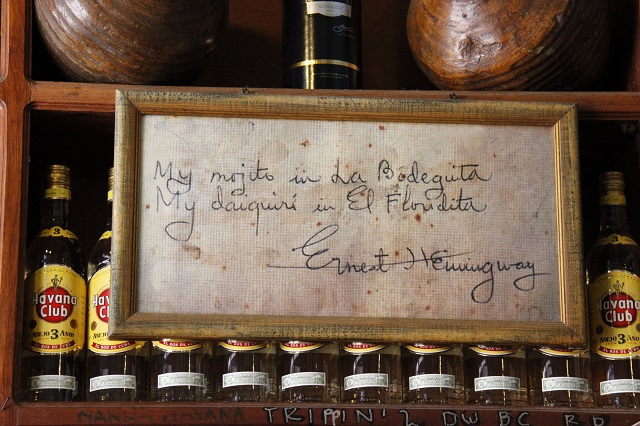 My mojito in La Bodeguita
My daiquirí in El Floridita
Ernest Hemingway
Havana
Club
AÑEJO 3 AÑOS
Havana
Club
AÑEJO 3
Havana
Club
AÑEJO 3 AÑOS
TRIPPIN' 2 DW BC R.R